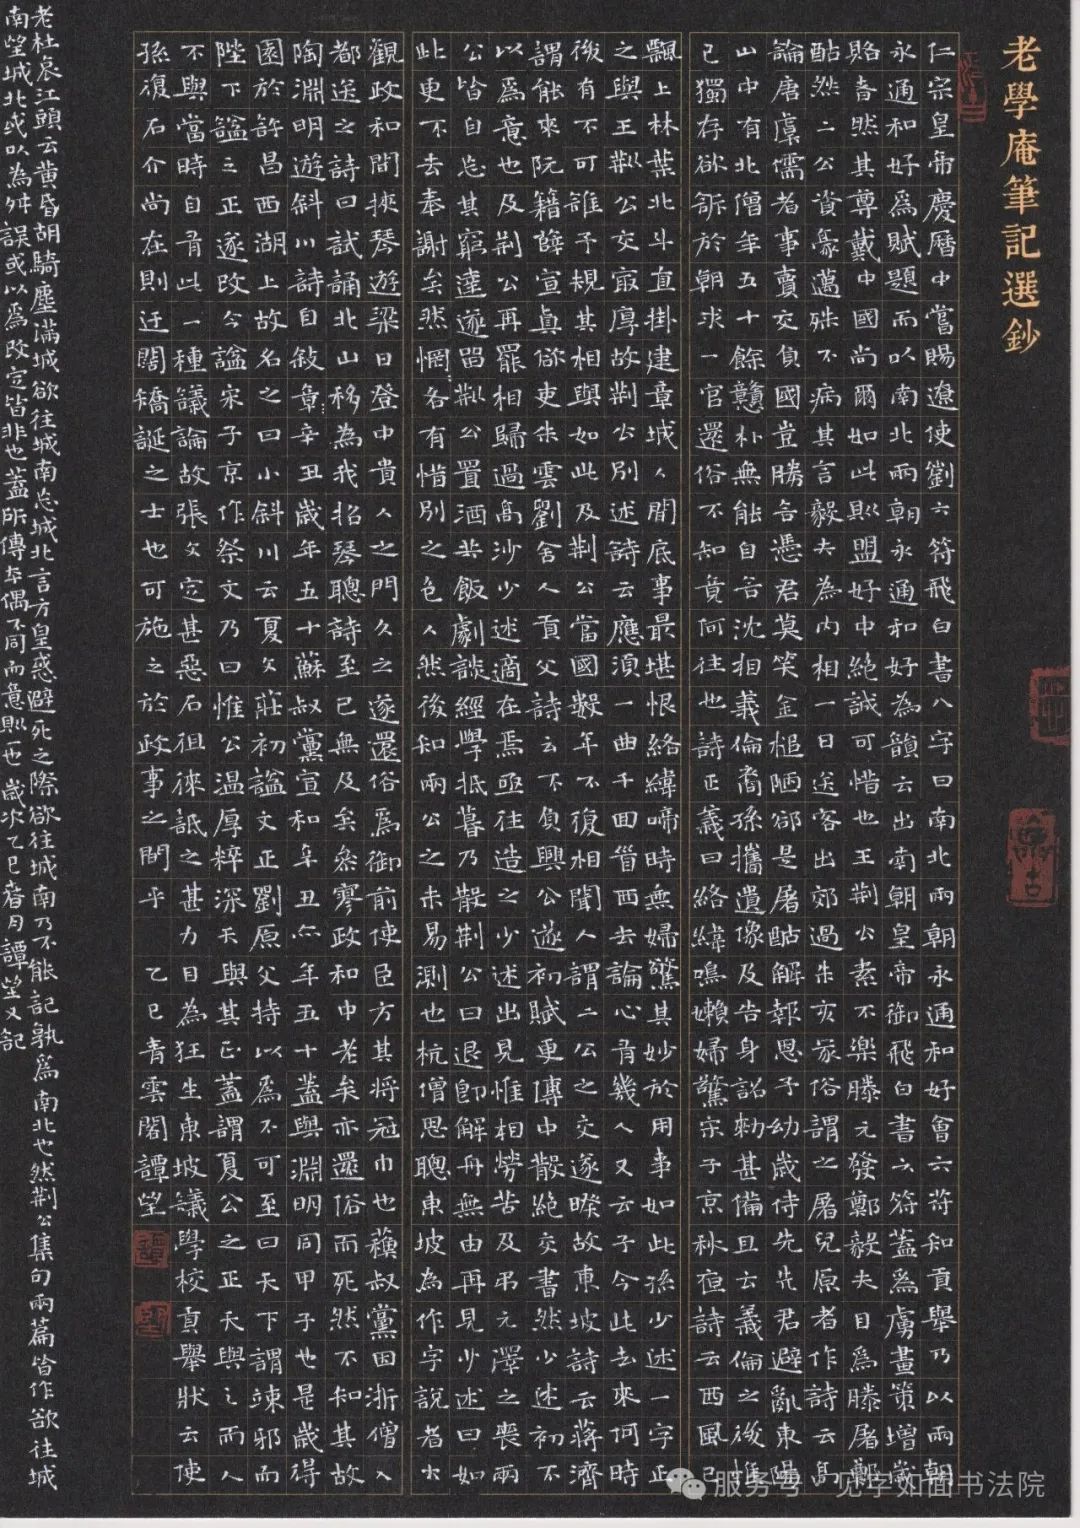 老學庵筆記選鈔
仁宗皇帝慶曆中嘗賜遼使劉六符飛白書八字曰南北兩朝永通和好會六符知貢舉乃以兩朝
永通和好爲賦題而以南北兩朝永通和好為韻云出南朝皇帝御飛白書六符蓋爲虜畫策增歲
賂者然其尊戴中國尚爾如此則盟好中絕誠可惜也王荆公素不樂滕元發鄭毅夫目爲滕屠鄭
酤然二公資豪邁殊不病其言毅夫為內相一日送客出郊過朱亥冢俗謂之屠兒原者作詩云高
論唐虞儒者事賣交負國豈勝言憑君莫笑金槌陋卻是屠酤解報恩予幼歲侍先君避亂東陽
山中有北僧年五十餘戇朴無能自言沈相義倫裔孫攜遺像及告身詔勅甚備且云義倫之後惟
己獨存欲訴於朝求一官還俗不知竟何往也詩正義曰絡緯鳴嬾婦驚宋子京秋夜詩云西風已
飄上林葉北斗直掛建章城人間底事最堪恨絡緯啼時無婦驚其妙於用事如此孫少述一字正
之與王荆公交最厚故荆公別述詩云應須一曲千回首西去論心有幾人又云子今此去來何時
後有不可誰予規其相與如此及荆公當國數年不復相聞人謂二公之交遂暌故東坡詩云蔣濟
謂能來阮籍薛宣真欲吏朱雲劉舍人貢父詩云不負興公遂初賦更傳中散絕交書然少述初不
以爲意也及荆公再罷相歸過高沙少述適在焉亟往造之少述出見惟相勞苦及弔元澤之喪兩
公皆自忘其窮達遂留荆公置酒共飯劇談經學抵暮乃散荆公曰退卽解舟無由再見少述曰如
此更不去奉謝矣然惘各有惜別之色人然後知兩公之未易測也杭僧思聰東坡為作字説者大
觀政和間挾琴遊梁日登中貴人之門久之遂還俗爲御前使臣方其將冠巾也蘓叔黨因浙僧入
都送之詩曰試誦北山移為我招琴聰詩至已無及矣參寥政和中老矣亦還俗而死然不知其故
陶淵明遊斜川詩自敍辛丑歲年五十蘇叔黨宣和辛丑亦年五十蓋與淵明同甲子也是歲得
園於許昌西湖上故名之曰小斜川云夏文莊初諡文正劉原父持以爲不可至曰天下謂竦邪而
陛下諡之正遂改今諡宋子京作祭文乃曰惟公温厚粹深天與其正蓋謂夏公之正天與之而人
不與當時自有此一種議論故張文定甚惡石徂徠詆之甚力目為狂生東坡議學校貢舉狀云使
孫復石介尚在則迂闊矯誕之士也可施之於政事之間乎 乙巳青雲閣譚望
老杜哀江頭云黄昏胡騎塵滿城欲往城南忘城北言方皇惑避死之際欲往城南乃不能記孰爲南北也然荆公集句兩篇皆作欲往城
南望城北或以為舛誤或以爲改定皆非也蓋所傳本偶不同而意則一也 歲次乙巳春月譚望又記
譚
望
服务号·见字如面书法院